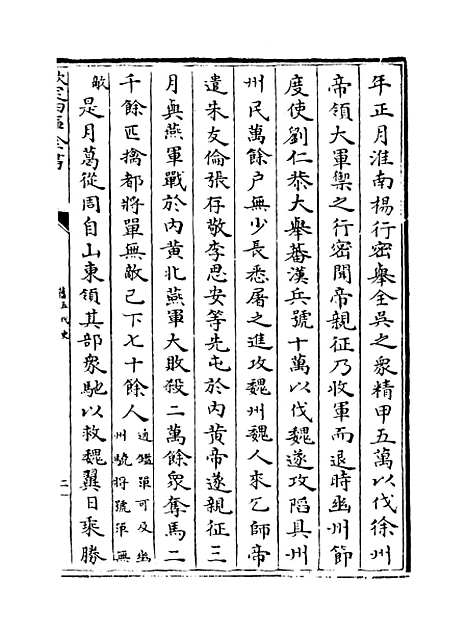 年正月淮南楊行密舉全吳之衆精甲五萬以伐徐州
帝領大軍禦之行密聞帝親征乃收軍而退時幽州節
度使劉仁恭大舉蕃漢兵號十萬以伐魏遂攻陷貝州
州民萬餘户無少長悉屠之進攻魏州魏人來乞師帝
遣朱友倫張存敬李思安等先屯於内黄帝遂親征三
月與燕軍戰於内黄北燕軍大敗殺二萬餘衆奪馬二
千餘匹擒都將單無敵已下七十餘人通鑑單可及幽
州號將號單無
敵是月葛從周自山東領其部衆馳以救魏翼日乘勝
欽定四庫全書
舊五代史